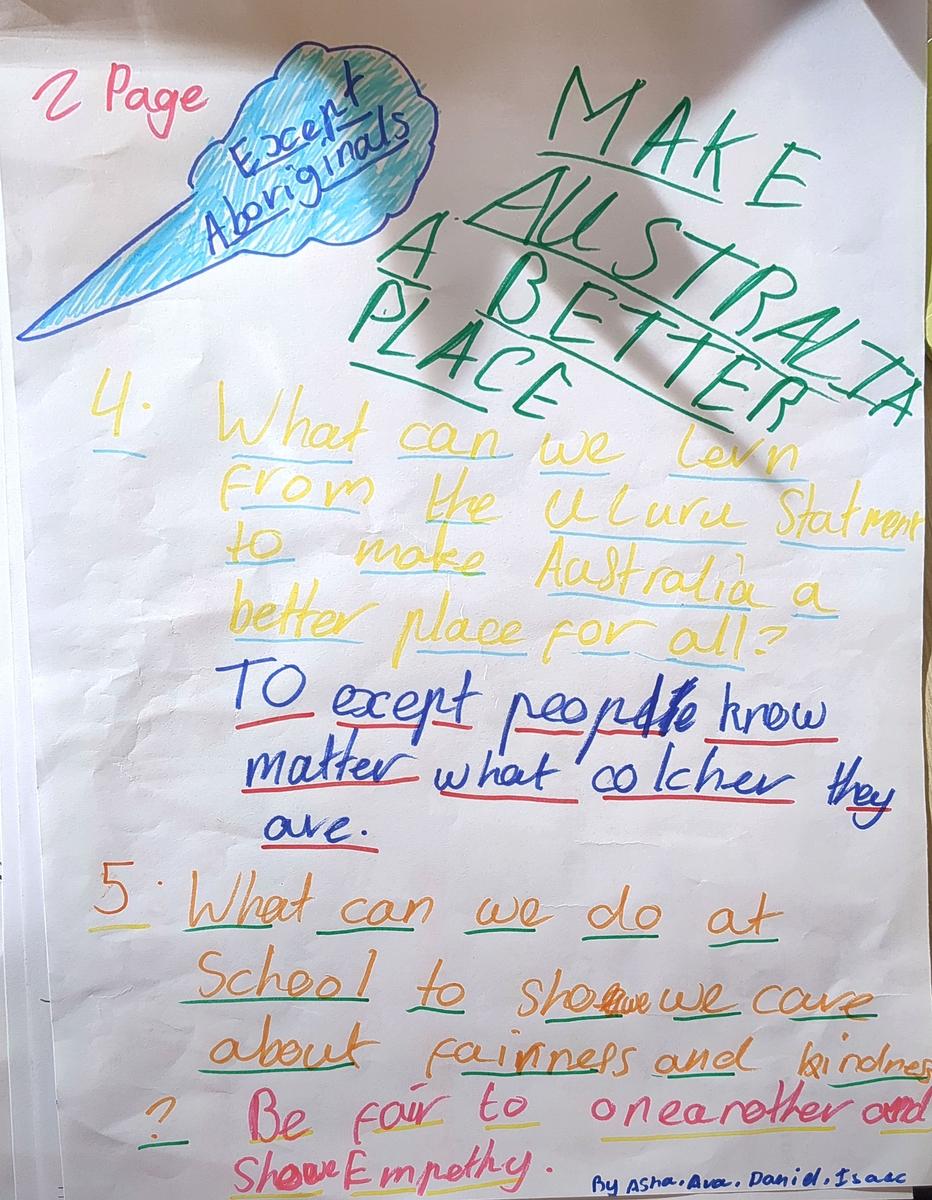 2 Page
Except
Aboriginals
MAKE
AUSTRALIA
A BETTER
PLACE
4. What can we lern
From the Uluru Statment
to make Australia a
better place for all?
TO except people know
matter what colcher they
are.
5. What can we do at
School to show we care
about fairness and kindness
? Be fair to oneanother and
Show Empethy.
By Asha. Ava. Daniel. Isaac